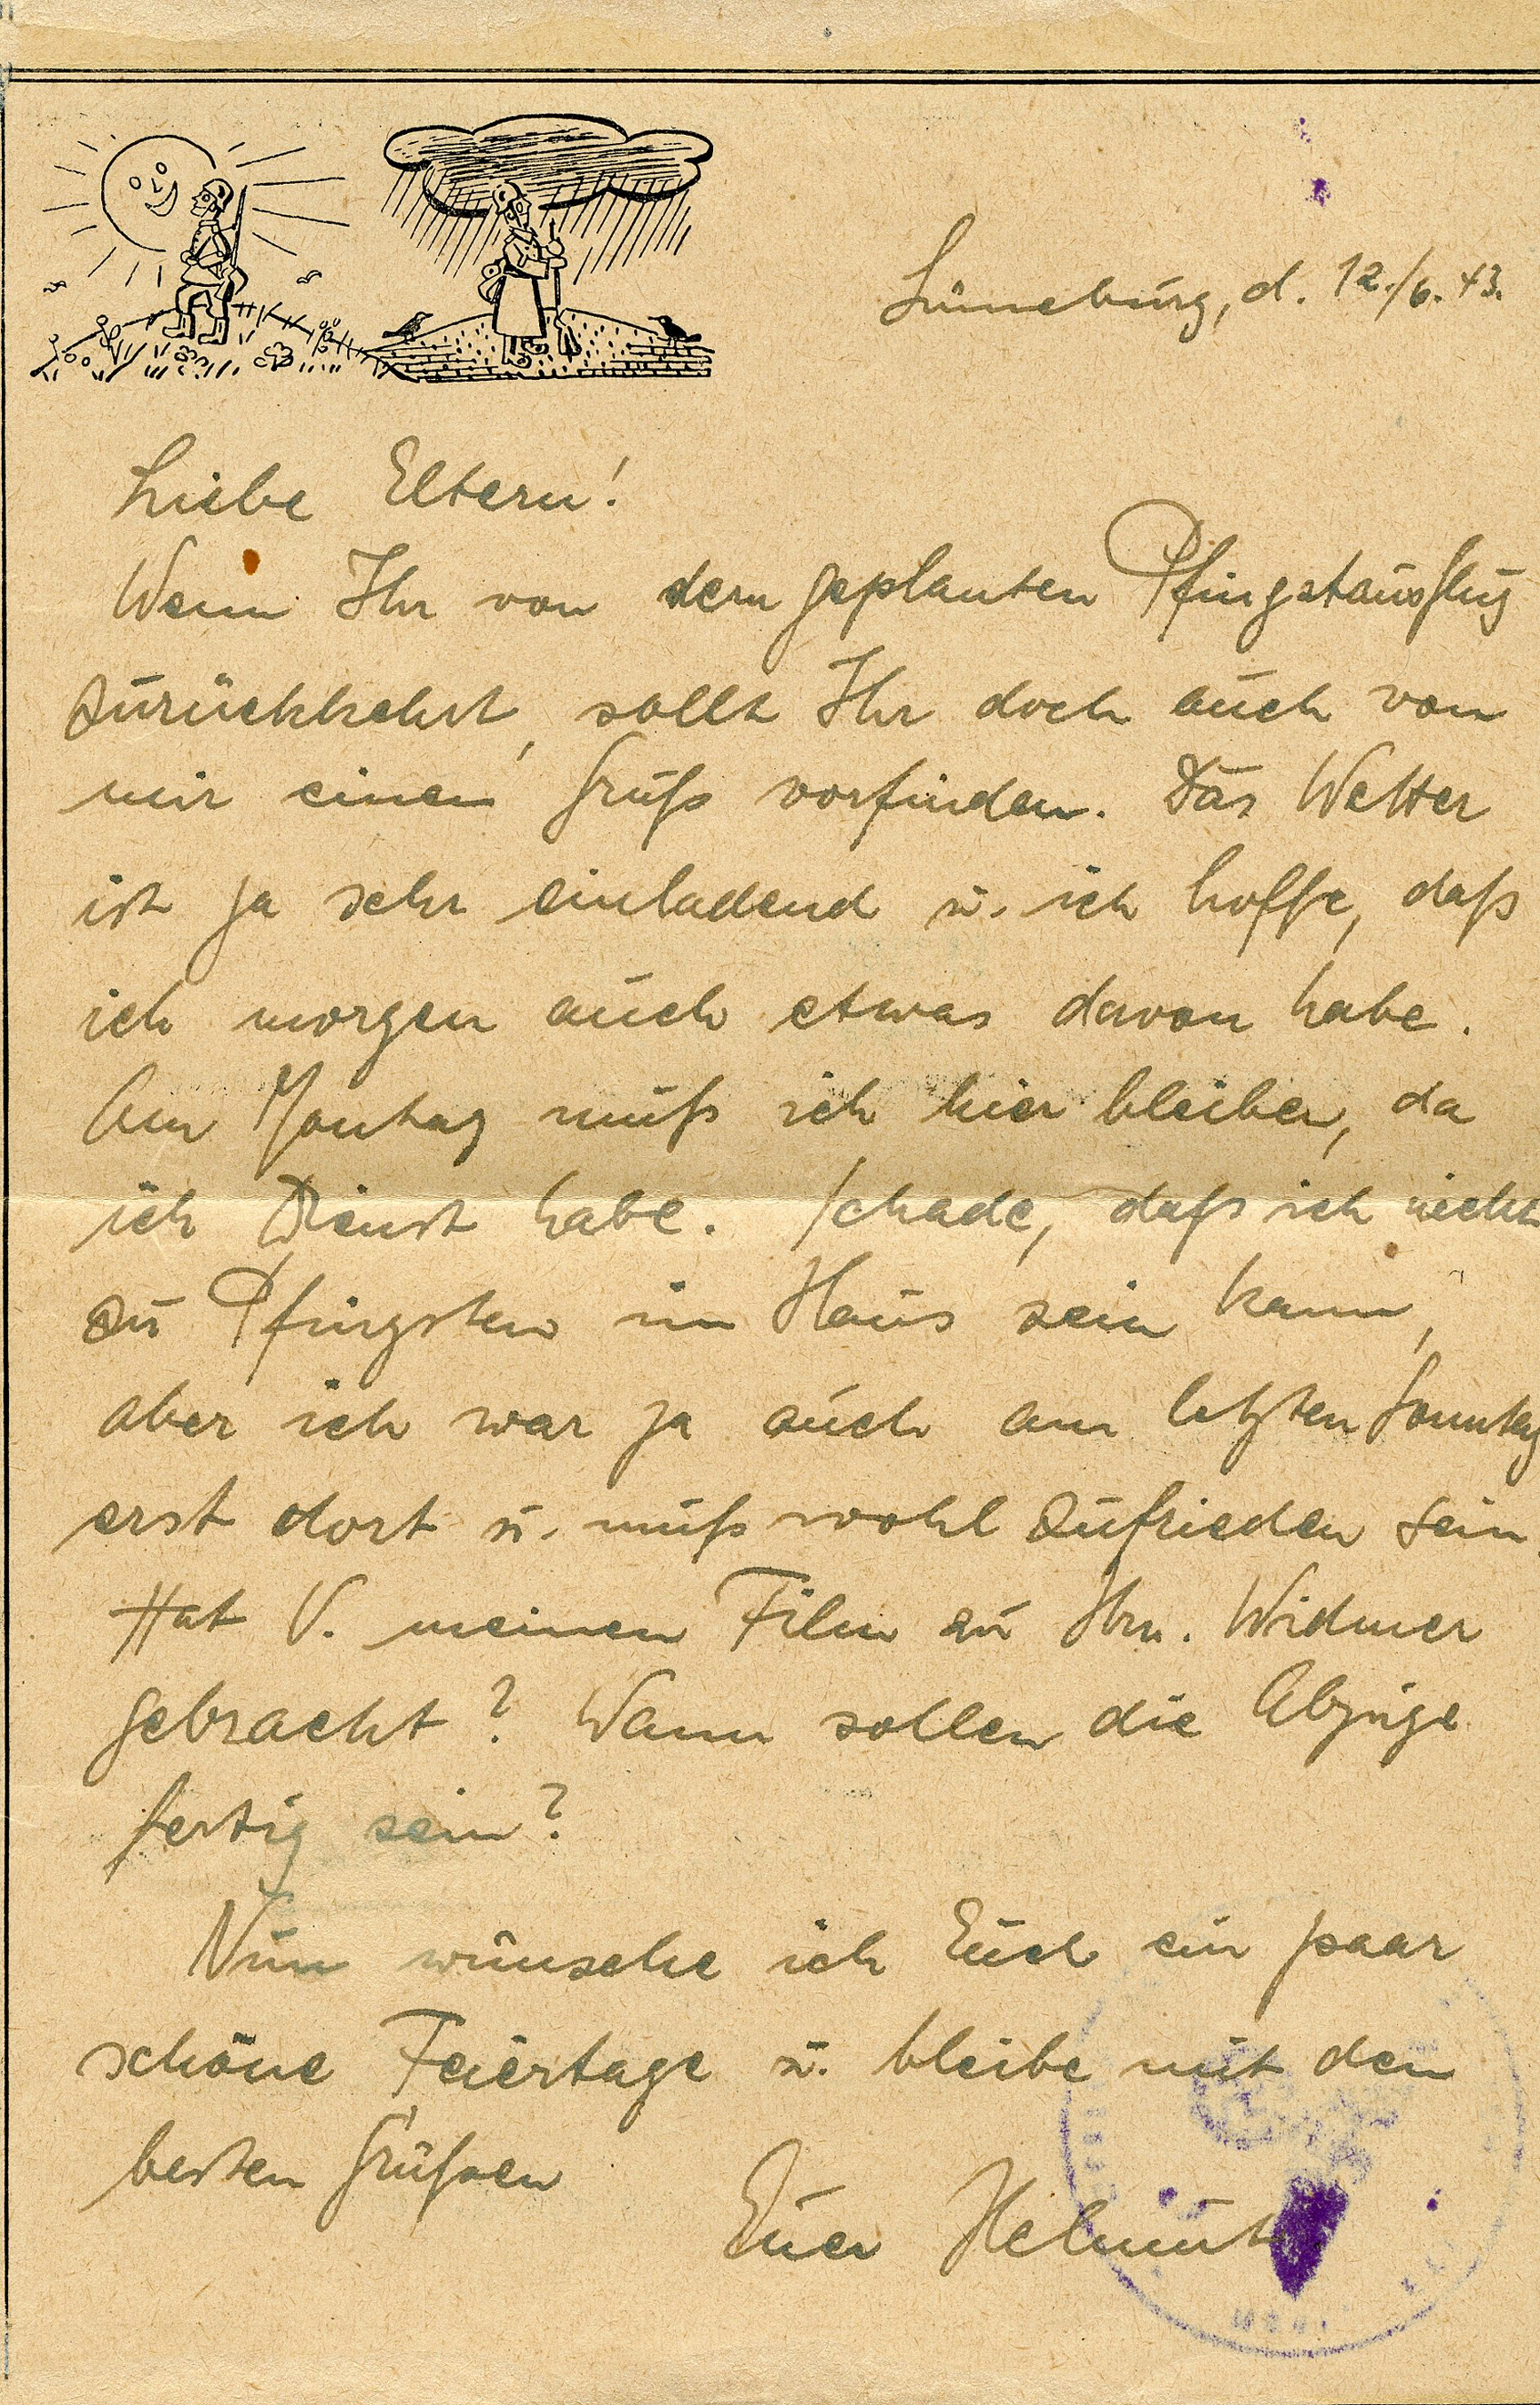 Lüneburg, d. 12./6. 43.
Liebe Eltern!
Wenn Ihr von dem geplanten Pfingstausflug
zurückkehrt, sollt Ihr doch auch von
mir einen Gruß vorfinden. Das Wetter
ist ja sehr einladend u. ich hoffe, daß
ich morgen auch etwas davon habe.
Am Montag muß ich hier bleiben, da
ich Dienst habe. Schade, daß ich nicht
zu Pfingsten im Haus sein kann,
aber ich war ja auch am letzten Sonntag
erst dort u. muß wohl zufrieden sein.
Hat V. meinen Film zu Hrn. Widmer
gebracht? Wann sollen die Abzüge
fertig sein?
Nun wünsche ich Euch ein paar
schöne Feiertage u. bleibe mit den
besten Grüßen
Euer Helmut